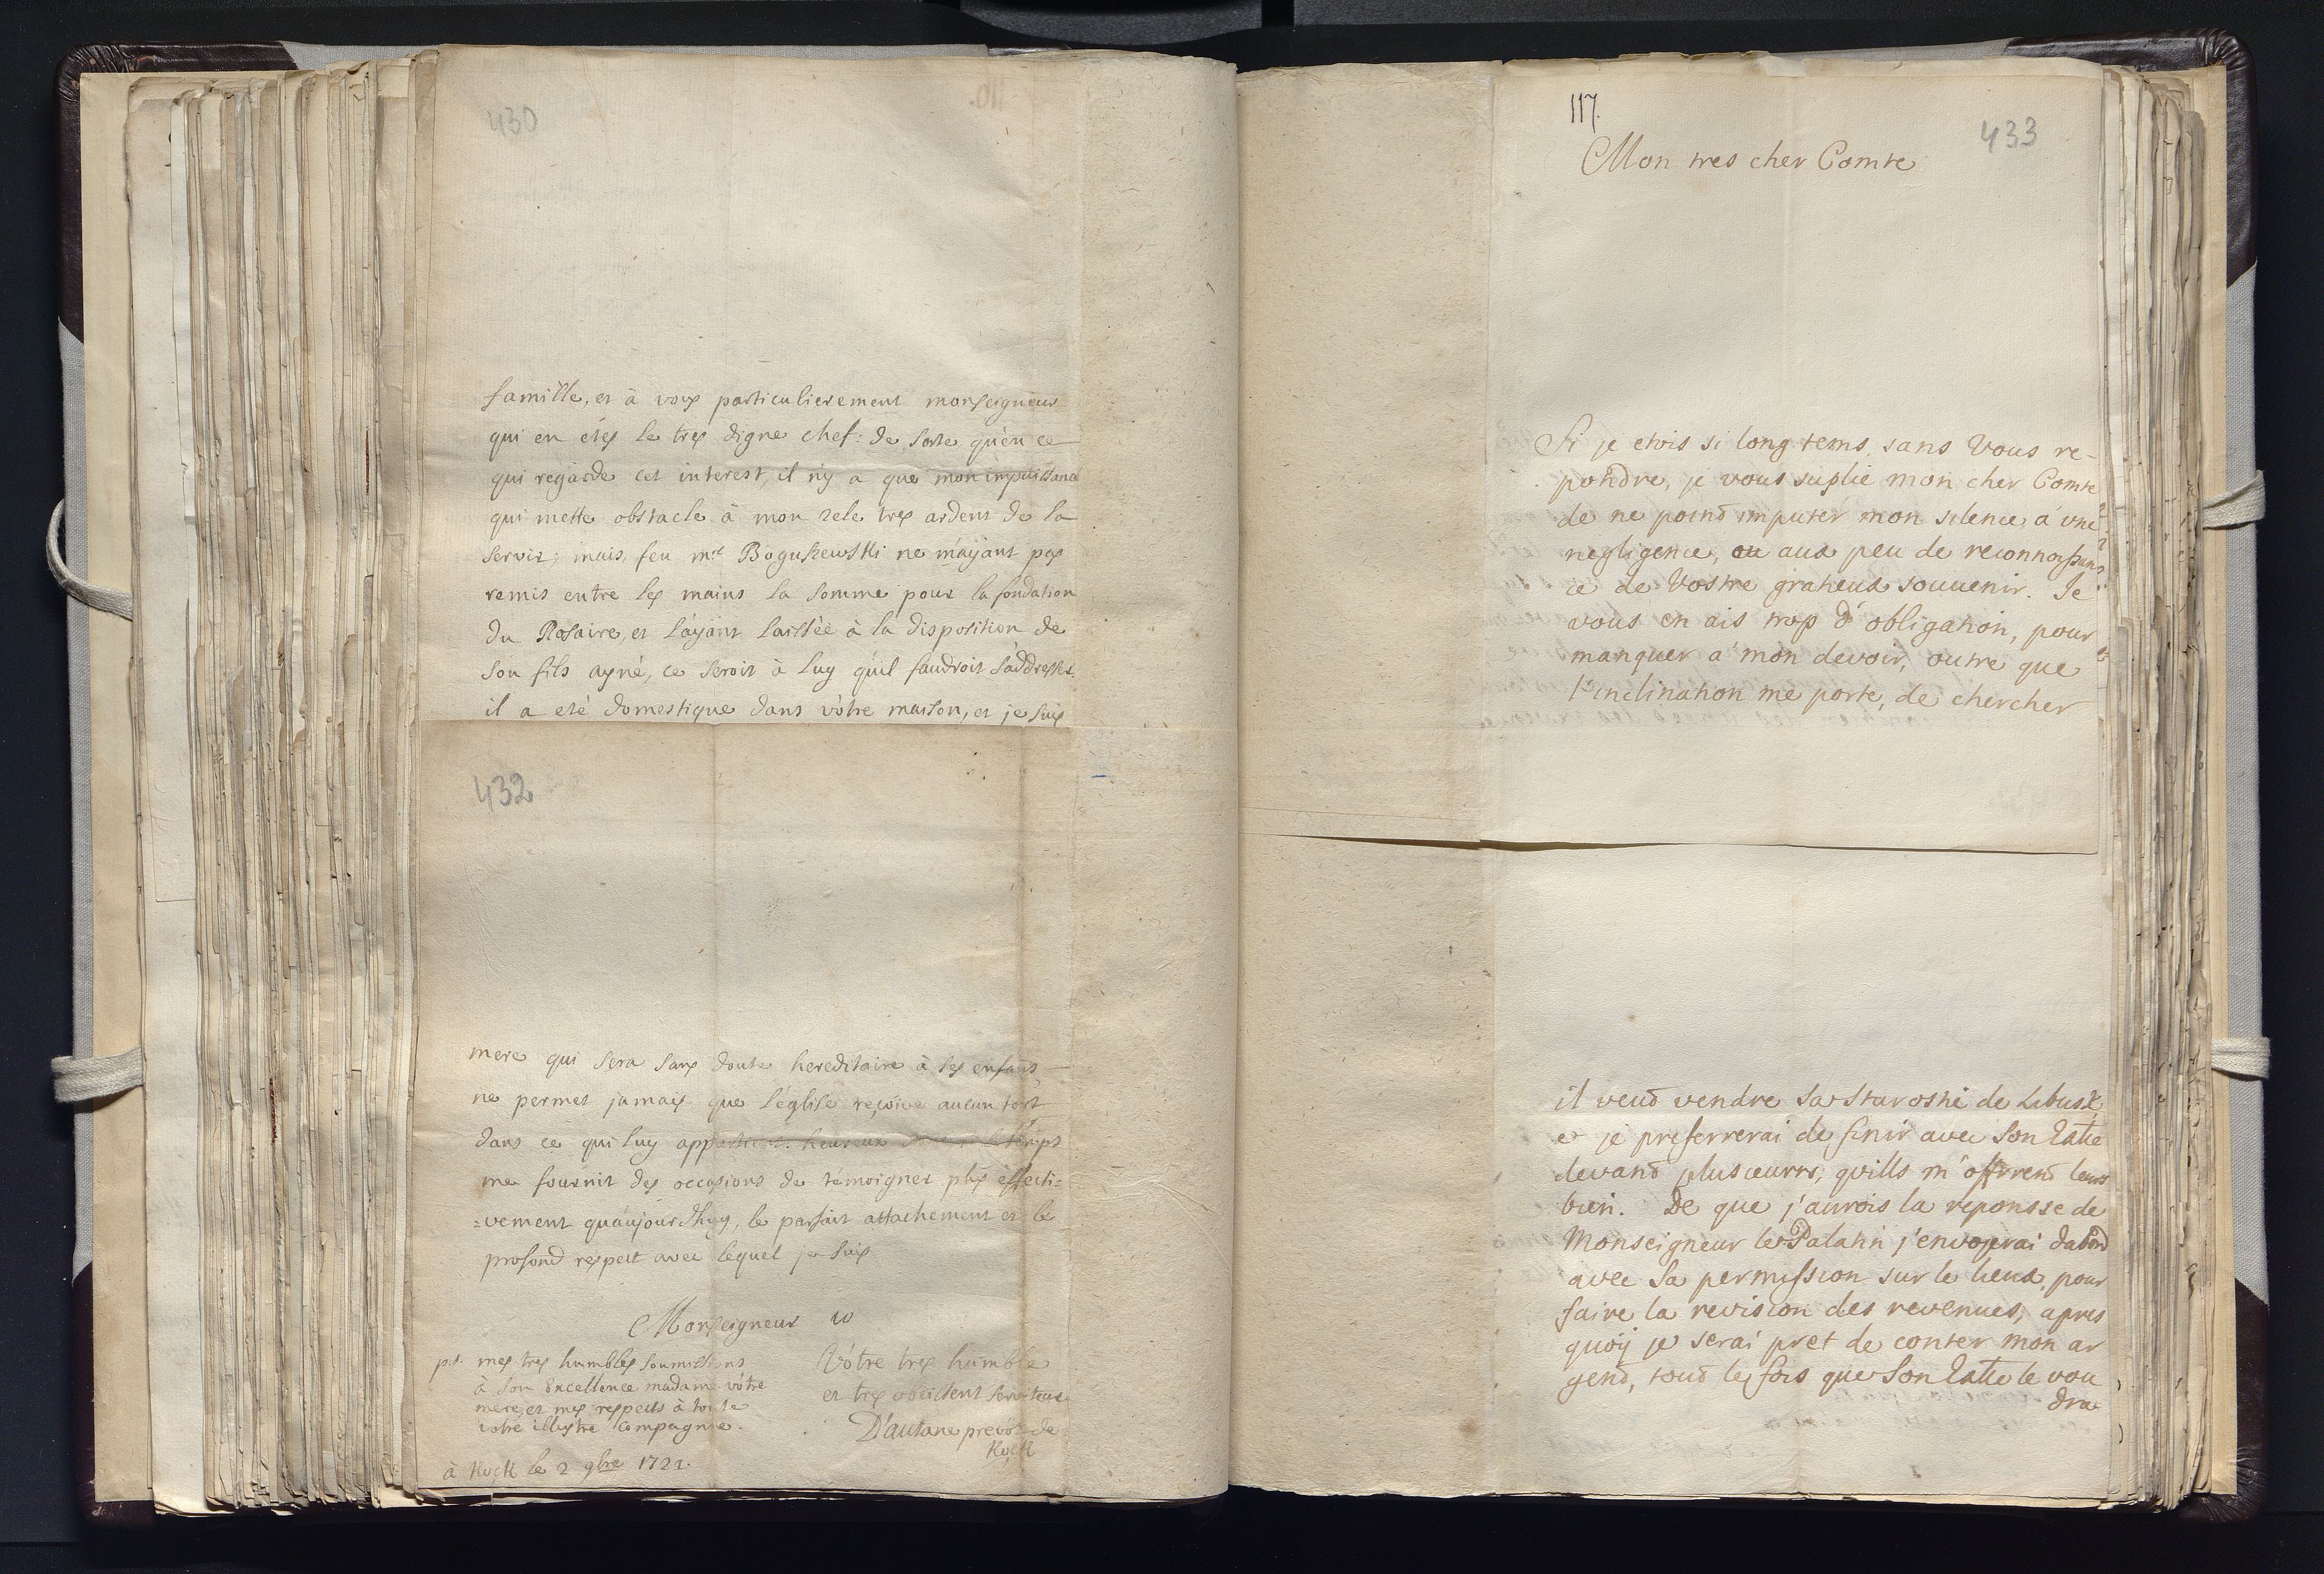 430
famille, et à vous particulierement monseigneur
qui en etes le tres digne chef: de sorte qu'en ce
qui regarde cet interest, il n'y a que mon impuissance
qui mette obstacle à mon zele tres ardent de la
servir; mais, feu mr Boguszewski ne m'ayant pas
remis entre les mains la somme pour la fondation
du Rosaire, et l'ayant laissée à la disposition de
son fils ayné, ce seroit à luy qu'il faudroit s'addresser
il a eté domestique dans vôtre maison, et je suis
432
mere qui sera sans doute hereditaire à ses enfans
ne permet jamais que l'église reçoive aucun tort
dans ce qui luy appartient. heureux si le temps
me fournit des occasions de témoigner plus effecti=
=vement qu'aujourdhuy, le parfait attachement et le
profond respect avec lequel je suis
Monseigneur
Vôtre tres humble
et tres obeissent serviteur
D'autane prevôt de
Kock
ps. mes tres humbles soumissions
à son Excellence madame vôtre
mere, et mes respects à toute
votre illustre compagnie.
à Kock le 2 9bre 1722.
117.
433
Mon tres cher Comte
Si je etois si long tems, sans Vous re-
pondre, je vous suplie mon cher Comte
de ne poind imputer mon silence a' vne
negligence, ou aux peu de reconnoissan
ce de Vostre gratieux souuenir. Je
vous en ais trop d'obligation, pour
manquer a' mon devoir, outre que
l'inclination me porte, de chercher
il veud vendre sa Starostie de Libusk
e je preferrerai de finir avec Son Exlle
devand plusœurrs, quills m'offrend leurs
bien. De que j'aurois la reponsse de
Monseigneur le Palatin j'envoyerai dabord
avec Sa permission sur le lieux, pour
faire la revision des revenues, apres
quoÿ je serai pret de conter mon ar
gend, toud les fois que Son Exlle le vou
dra